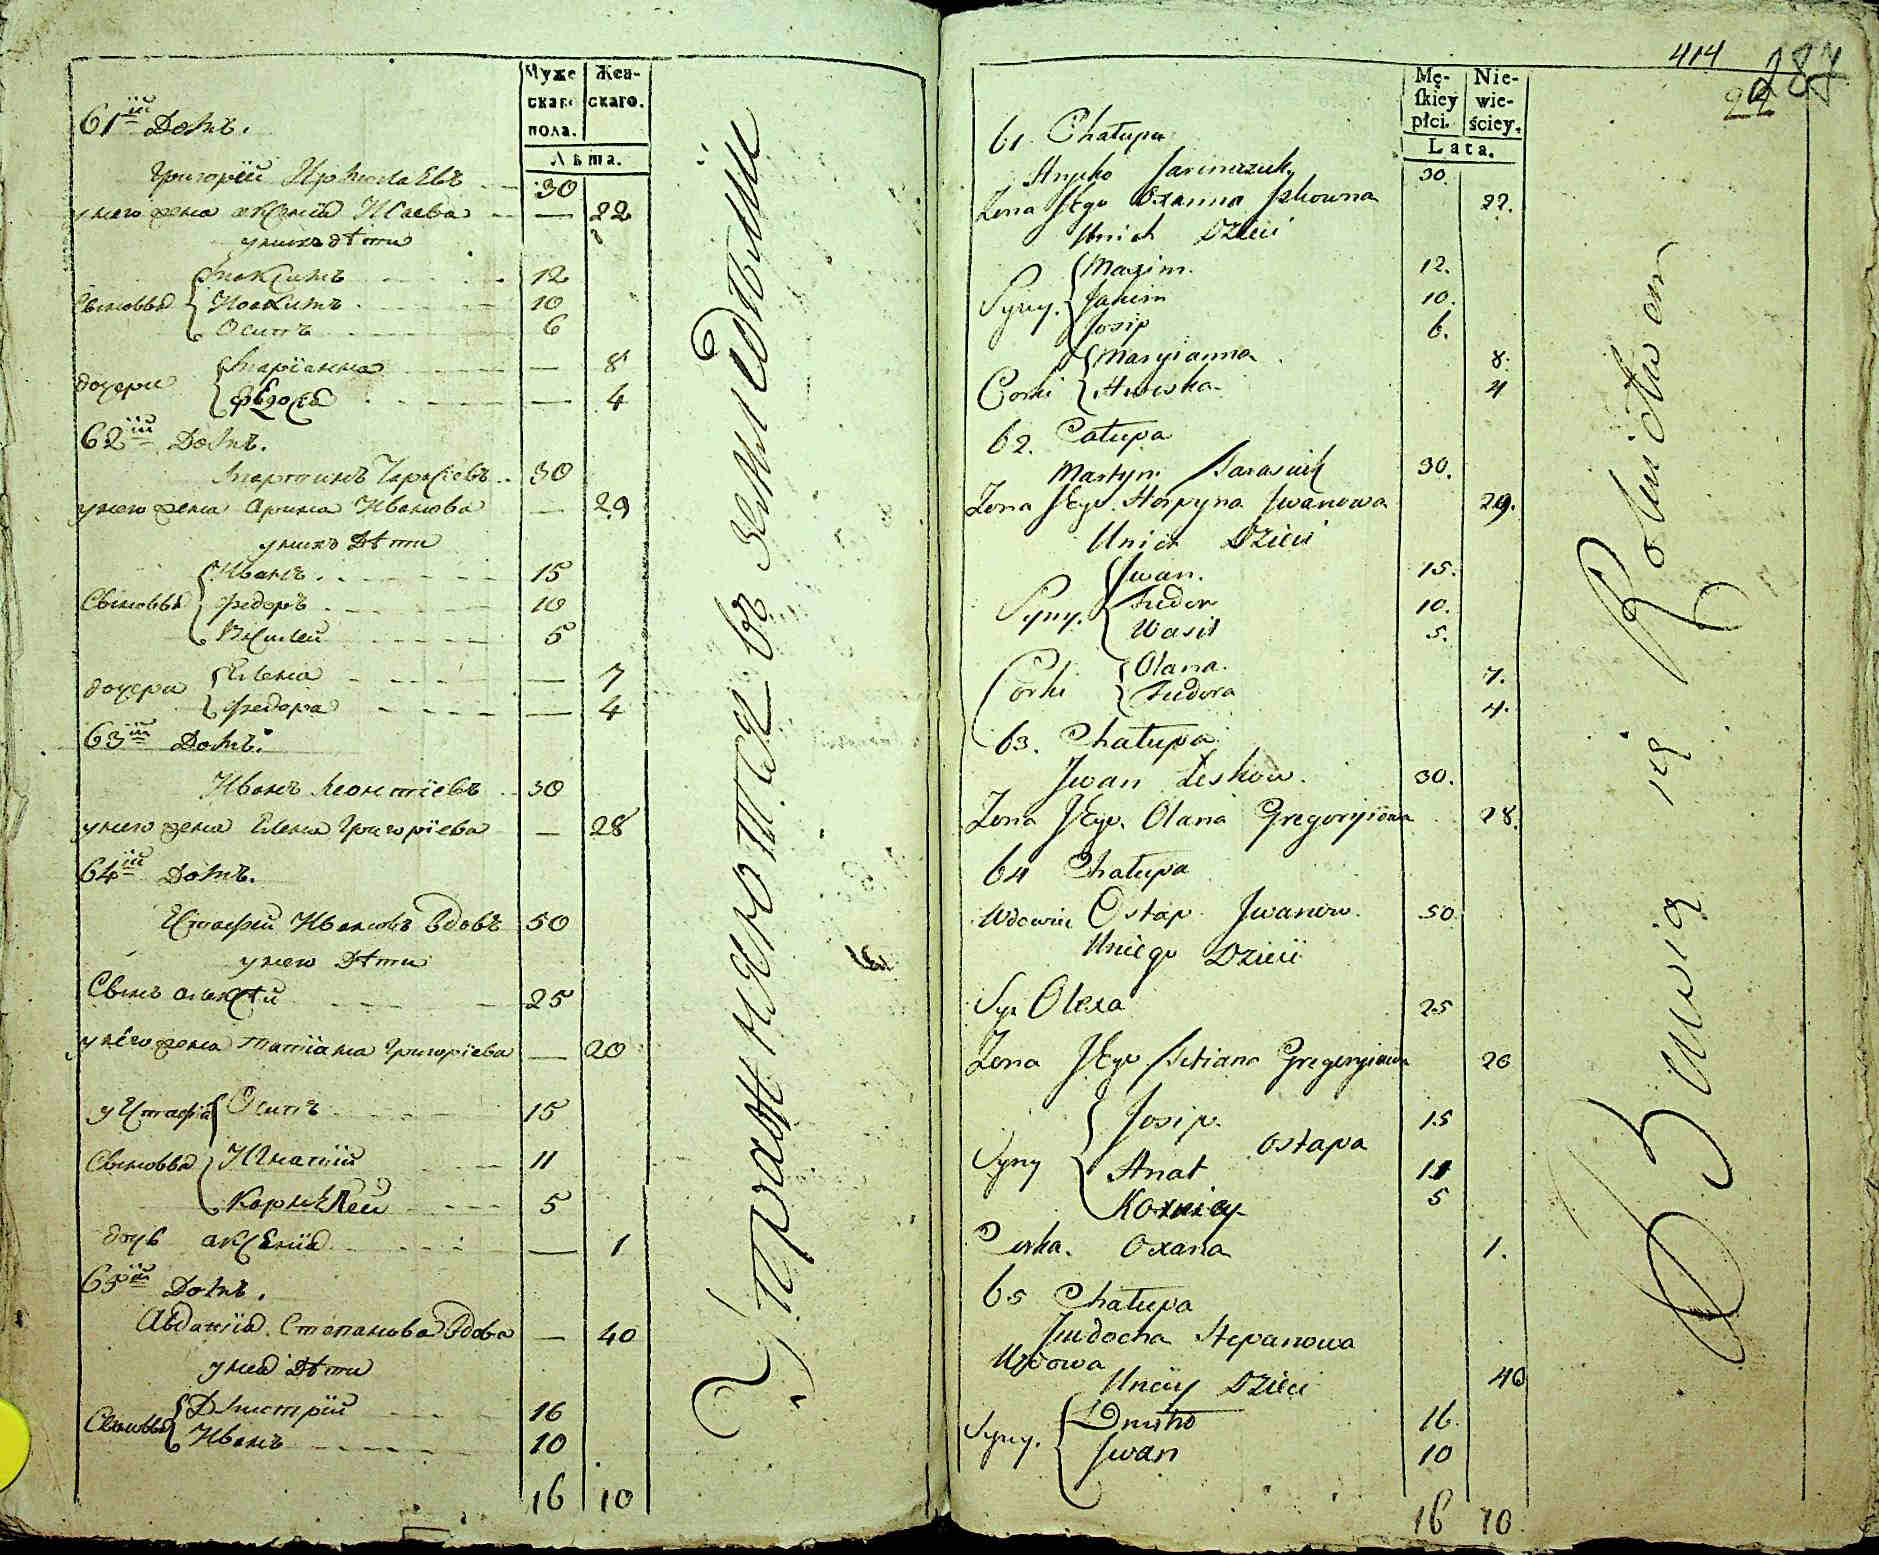 Муже
скаго
пола.
Жен-
скаго.
Лѣта.
61ій Домъ.
Григорій Ярмолаевъ 30
у него жена Аксенія Исаева — 22
у нихъ дѣти
Сыновья Максимъ 12
Иоакимъ 10
Осипъ 6
дочери Маріанна — 8
Ѳедосія — 4
62ій Домъ.
Мартинъ Тарасіевъ 30
у него жена Арина Иванова — 29
у нихъ Дѣти
Сыновья Иванъ 15
Федоръ 10
Василей 5
дочери Елена — 7
Федора — 4
63ій Домъ.
Иванъ Леонтіевъ 30
у него жена Елена Григоріева — 28
64ій Домъ.
Естафей Ивановъ Вдовъ 50
у него Дѣти
Сынъ Алексѣй 25
у него жена Татіана Григоріева — 20
у Естафія Осипъ 15
Сыновья Игнатій 11
Корнѣлей 5
дочь Аксенія — 1
65ій Домъ.
Авдотія Степанова Вдова — 40
у нея Дѣти
Сыновья Дмитрій 16
Иванъ 10
16 10
Упражняются въ земледѣліи
414
287
Mę-
skiey
płci.
Nie-
wie-
ściey.
Lata.
61 Chałupa
Hryćko Jarmczuk 30.
Zona Jego Oxanna Jskowna 22.
Unich Dzieci
Syny. Maxim. 12.
Jakim 10.
Josip 6.
Corki Maryianna 8.
4
62. Catupa
Martyn Tarasiuk 30.
Zona Jego Horpyna Jwanowa 29.
Unich Dzieci
Syny. Jwan. 15.
Fiedor 10.
Wasil 5.
Corki Olana. 7.
Fiedora 4.
63. Chałupa
Jwan Leskow. 30.
Zona Jego Olana Gregoryiowa 28.
64 Chałupa
Wdowiec Ostap Jwanow. 50.
Uniego Dzieci
Syn Olexa 25
Zona Jego Tetiana Gregoryiowa 20
Syny Josip. Ostapa 15
Hnat 11
5
Corka. Oxana 1.
65 Chałupa
Jwdocha Stepanowa
Wdowa 40
Uneiy Dzieci
Syny. Dmitro 16.
Jwan 10
16 10
Bawią się Rolnictwem